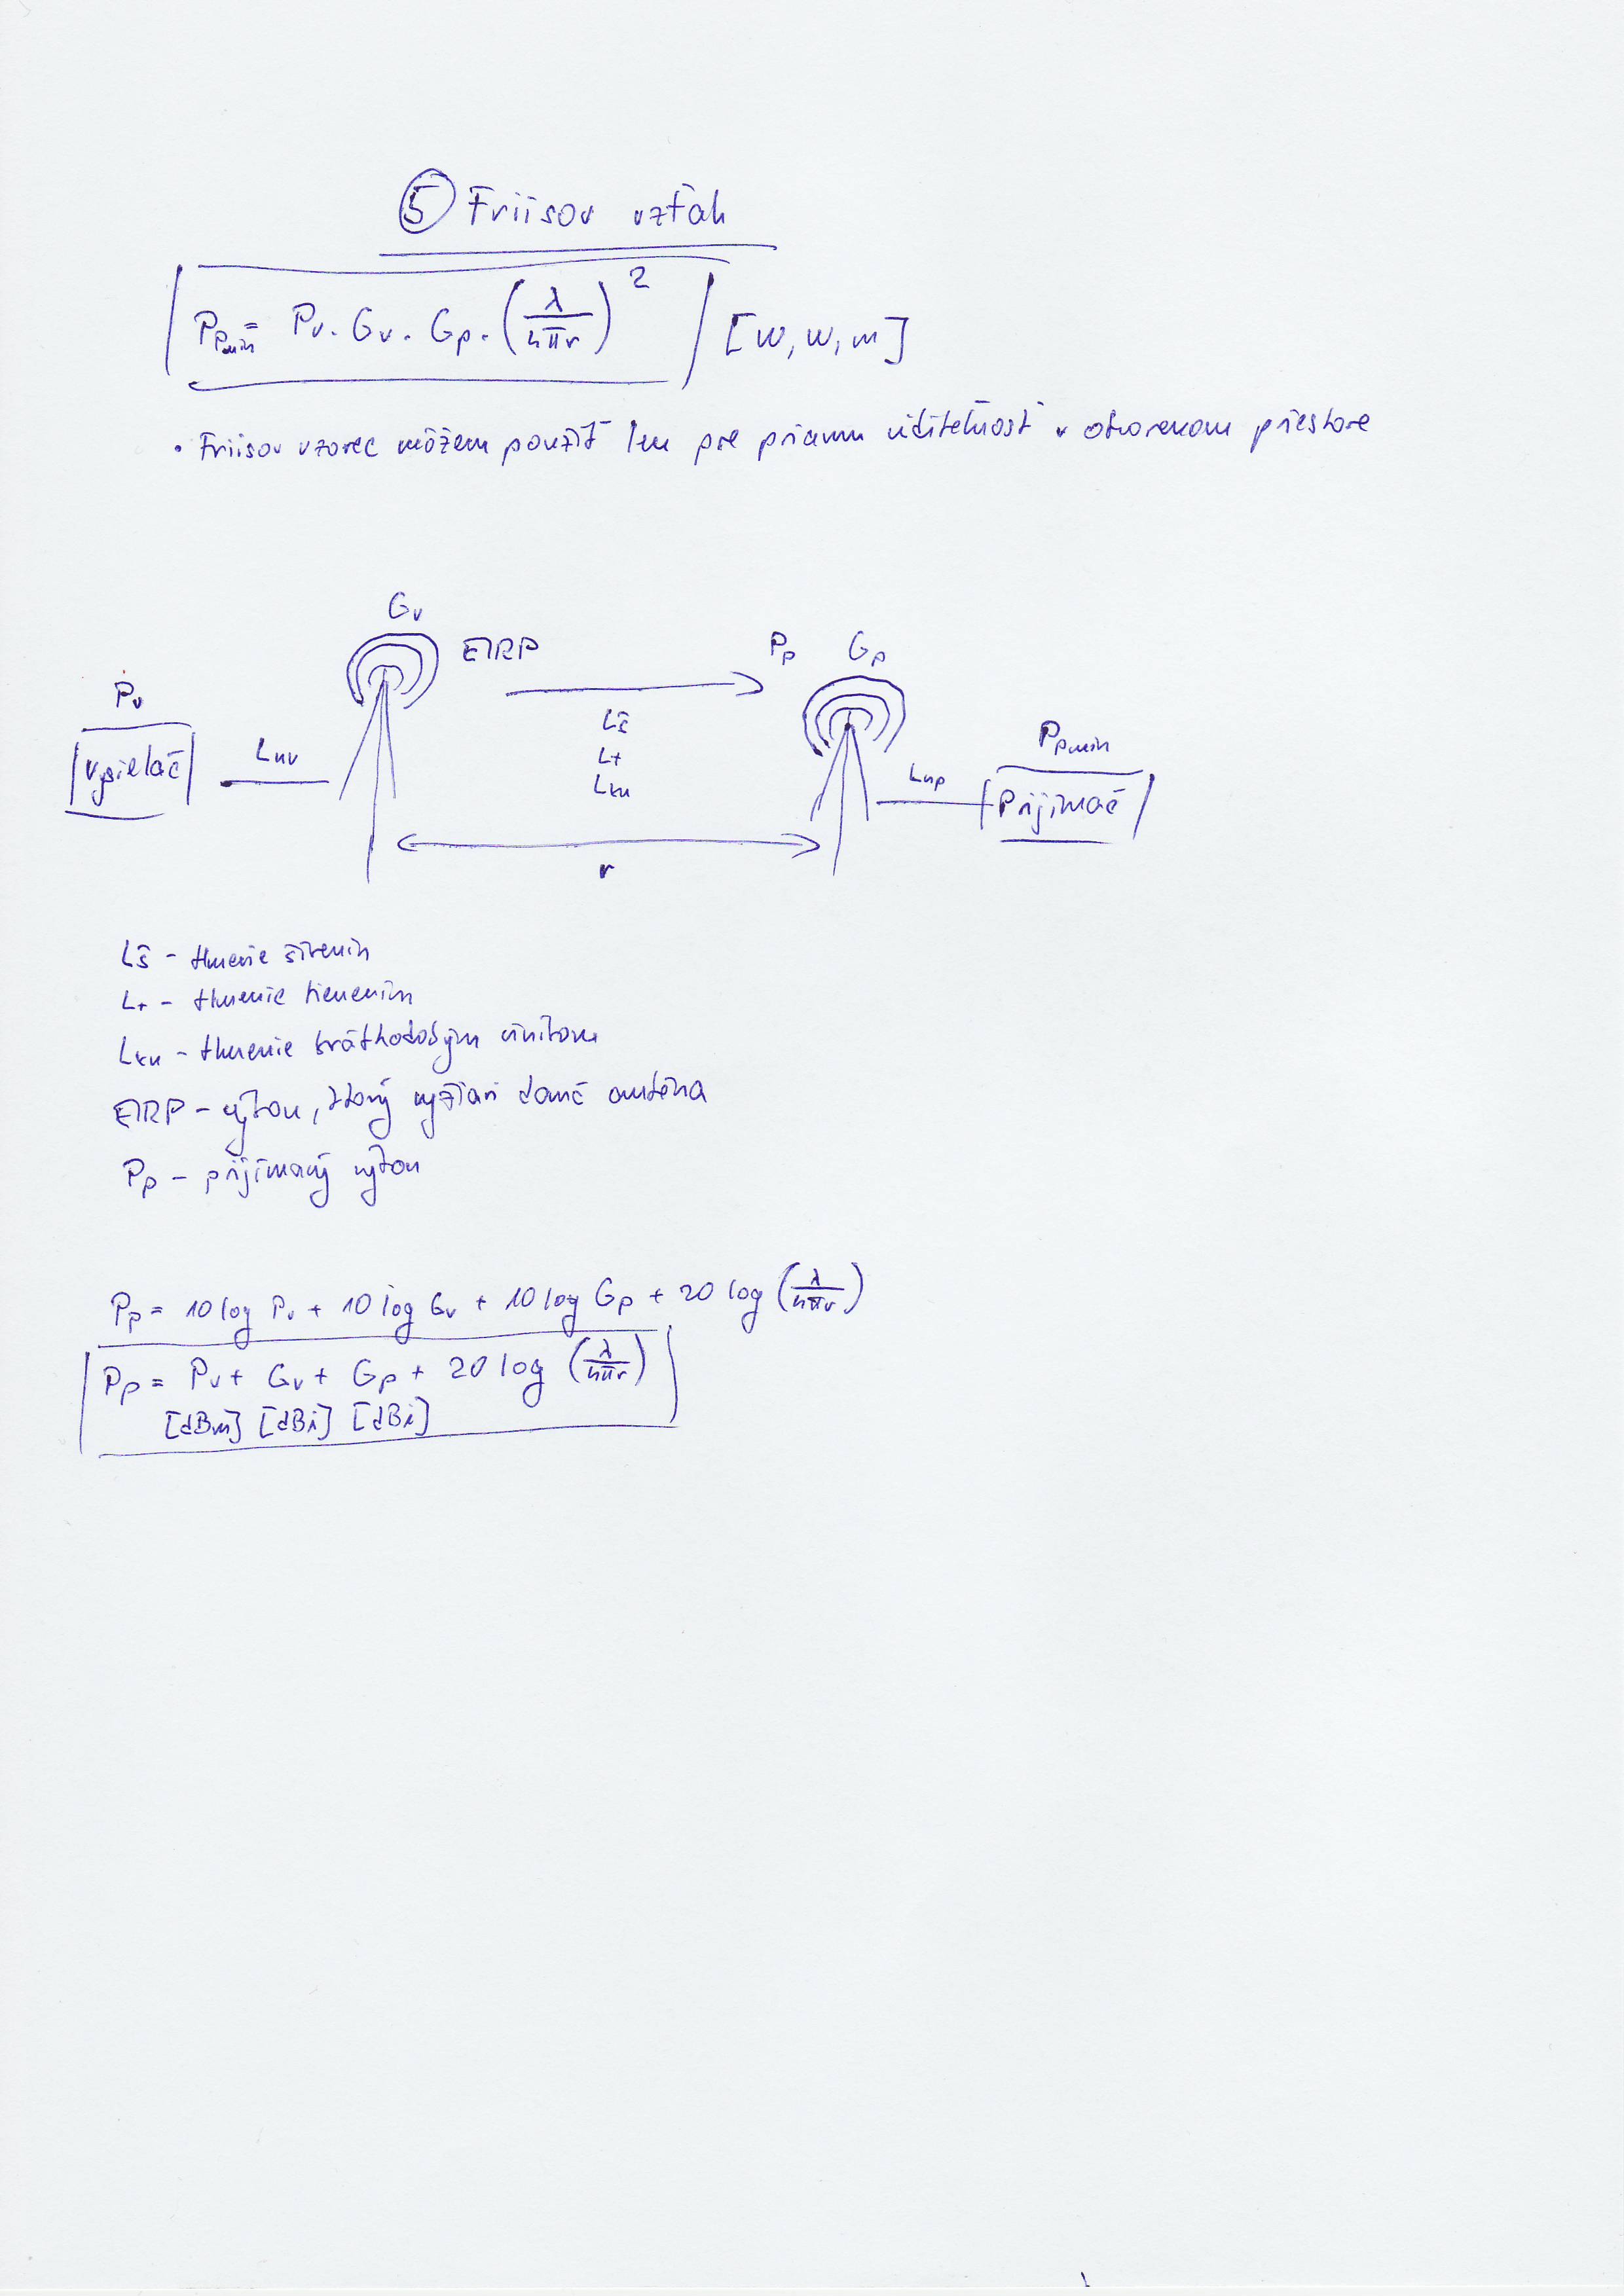 ⑤ Friisov vzťah
P_Pmin = Pv · Gv · Gp · (λ/4πr)² [W, W, m]
• Friisov vzorec môžem použiť len pre priamu viditeľnosť v otvorenom priestore
Gv
EIRP
Pp Gp
Pv
Lš
Ppmin
vysielač
Lnv
Lt
Lku
Lnp
Prijímač
r
Lš - tlmenie šírením
Lt - tlmenie tienením
Lku - tlmenie krátkodobým únikom
EIRP - výkon, ktorý vyžiari daná anténa
Pp - prijímaný výkon
Pp = 10 log Pv + 10 log Gv + 10 log Gp + 20 log (λ/4πr)
Pp = Pv + Gv + Gp + 20 log (λ/4πr)
[dBm] [dBi] [dBi]